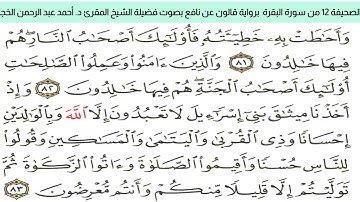 صحيفة 12 من سورة البقرة برواية قالون عن نافع بصوت فضيلة الشيخ المقرئ د. أحمد عبد الرحمن
وَأَحَٰطَتْ بِهِۦ خَطِيٓـَٰٔتُهُۥ فَأُوْلَٰٓئِكَ أَصْحَٰبُ اُ۬لنَّارِ هُمْ
فِيهَا خَٰلِدُونَ ٨١ وَالذِينَ ءَامَنُواْ وَعَمِلُواْ اُ۬لصَّٰلِحَٰتِ
أُوْلَٰٓئِكَ أَصْحَٰبُ اُ۬لْجَنَّةِ هُمْ فِيهَا خَٰلِدُونَ ٨٢ وَإِذَ
اَخَذْنَا مِيثَٰقَ بَنِےٓ إِسْرَآءِيلَ لَا تَعْبُدُونَ إِلَّا اَ۬للَّهَ وَبِالْوَٰلِدَيْنِ
إِحْسَانًا وَذِے اِ۬لْقُرْبَىٰ وَالْيَتَٰمَىٰ وَالْمَسَٰكِينِ وَقُولُواْ
لِلنَّاسِ حُسْنًا وَأَقِيمُواْ اُ۬لصَّلَوٰةَ وَءَاتُواْ اُ۬لزَّكَوٰةَ ثُمَّ
تَوَلَّيْتُمْ إِلَّا قَلِيلًا مِّنكُمْ وَأَنتُم مُّعْرِضُونَ ٨٣